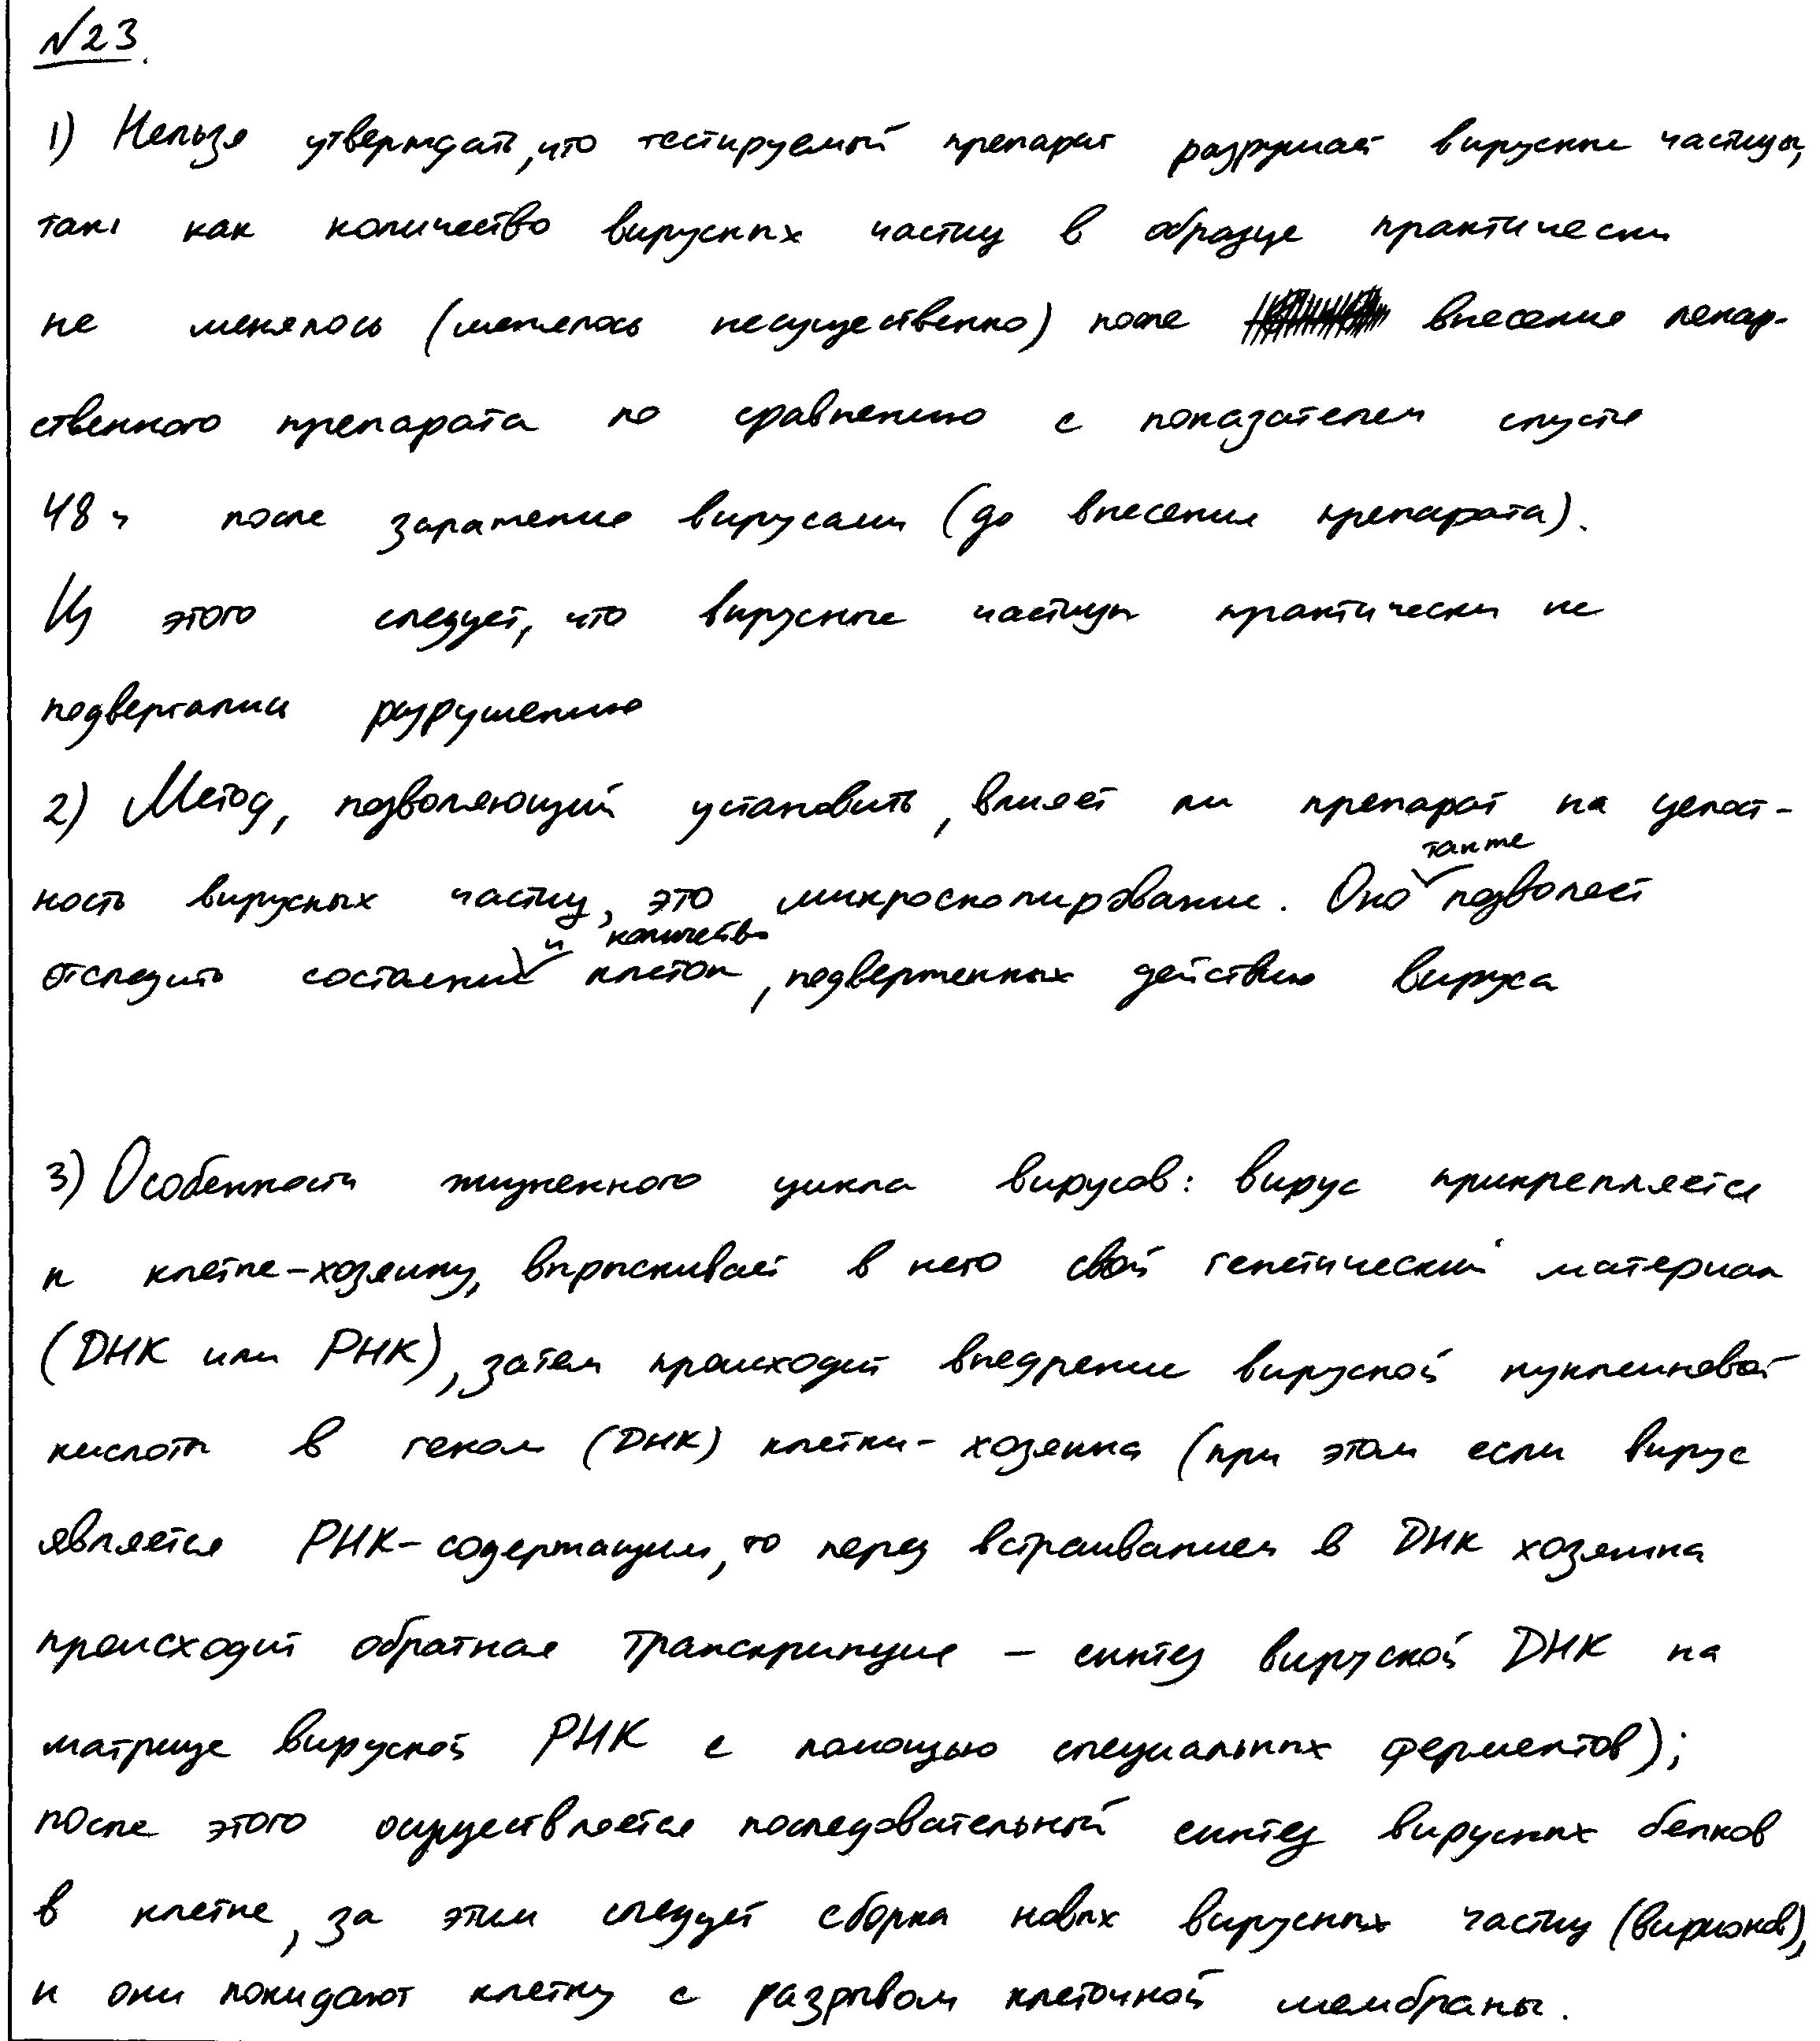 №23.
1) Нельзя утверждать, что тестируемый препарат разрушает вирусные частицы,
так как количество вирусных частиц в образце практически
не менялось (менялось несущественно) после внесения лекар-
ственного препарата по сравнению с показателем спустя
48 ч после заражения вирусами (до внесения препарата).
Из этого следует, что вирусные частицы практически не
подвергались разрушению
2) Метод, позволяющий установить, влияет ли препарат на целост-
ность вирусных частиц, это микроскопирование. Оно также позволяет
отследить состояние и количество клеток, подверженных действию вируса
3) Особенности жизненного цикла вирусов: вирус прикрепляется
к клетке-хозяину, впрыскивает в него свой генетический материал
(ДНК или РНК), затем происходит внедрение вирусной нуклеиновой
кислоты в геном (ДНК) клетки-хозяина (при этом если вирус
является РНК-содержащим, то перед встраиванием в ДНК хозяина
происходит обратная транскрипция – синтез вирусной ДНК на
матрице вирусной РНК с помощью специальных ферментов);
после этого осуществляется последовательный синтез вирусных белков
в клетке, за этим следует сборка новых вирусных частиц (вирионов),
и они покидают клетку с разрывом клеточной мембраны.